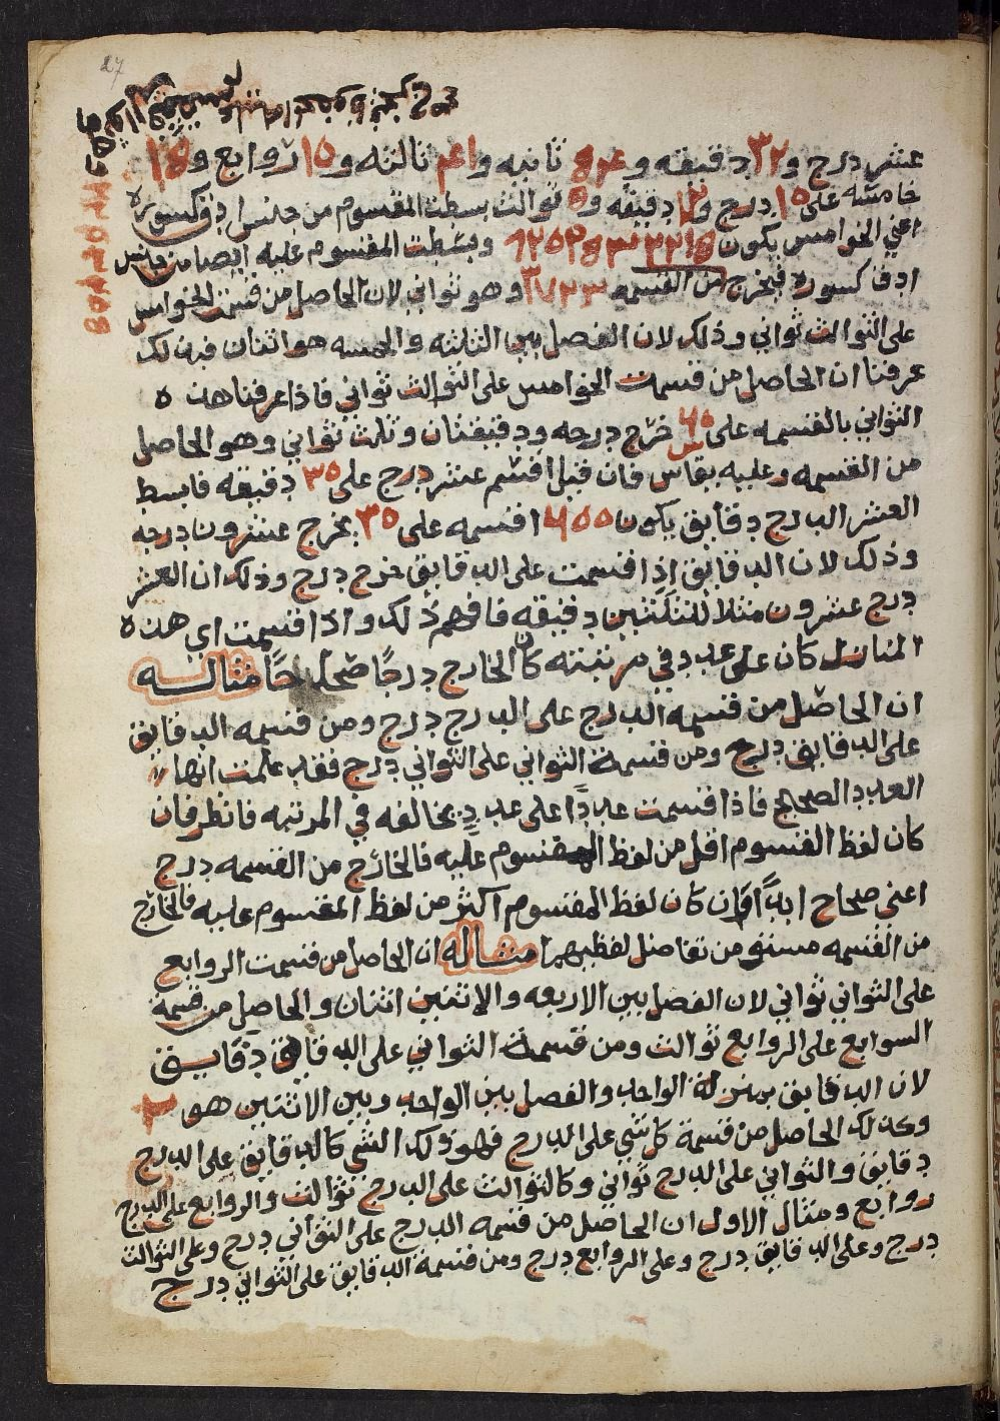 عشر درج و٣٢ دقيقه و ثانيه و ثالثه و١٥ روابع و
خامسه على ١٥ درج و دقيقه و٥ ثوالث بسطت المقسوم من جنس ادق كسوره
اعني الخوامس يكون وبسطت المقسوم عليه ايضا من جنس
ادق كسوره فيخرج من القسمه وهو ثواني لان الحاصل من قسمت الخوامس
على الثوالث ثواني وذلك لان الفصل بين الثلثه والخمسه هو اثنان فبذلك
عرفنا ان الحاصل من قسمت الخوامس على الثوالث ثواني فاذا عرفنا هذه
الثواني بالقسمه على خرج درجه ودقيقتان وثلث ثواني وهو الحاصل
من القسمه وعليه يقاس فان قيل اقسم عشر درج على ٣٥ دقيقه فابسط
العشر الدرج دقايق يكون اقسمه على ٣٥ يخرج عشرون درجه
وذلك لان الدقايق اذا قسمت على الدقايق خرج درج وذلك ان العشر
درج عشرون مثلا للثلثين دقيقه فافهم ذلك واذا قسمت اي هذه
المنازل كان على عدد في مرتبته كان الخارج درجًا صحاحًا مثاله
ان الحاصل من قسمه الدرج على الدرج درج ومن قسمه الدقايق
على الدقايق درج ومن قسمة الثواني على الثواني درج فقد علمت انها
العدد الصحيح فاذا قسمت عددًا على عددٍ يخالفه في المرتبه فانظر فان
كان لفظ المقسوم اقل من لفظ المقسوم عليه فالخارج من القسمه درج
اعني صحاح ابدًا فان كان لفظ المقسوم اكثر من لفظ المقسوم عليه فالخارج
من القسمه من تفاضل لفظيهما مثاله ان الحاصل من قسمت الروابع
على الثواني ثواني لان الفصل بين الاربعه والاثنين اثنان والحاصل من قسمة
السوابع على الروابع ثوالث ومن قسمة الثواني على الدقايق دقايق
لان الدقايق بمنزلة الواحد والفصل بين الواحد وبين الاثنين هو
وكذلك الحاصل من قسمة كل شي على الدرج فهو ذلك الشي كالدقايق على الدرج
دقايق والثواني على الدرج ثواني وكالثوالث على الدرج ثوالث والروابع على الدرج
روابع ومثال الاول ان الحاصل من قسمه الدرج على الثواني درج وعلى الثوالث
درج وعلى الدقايق درج وعلى الروابع درج ومن قسمة الدقايق على الثواني درج